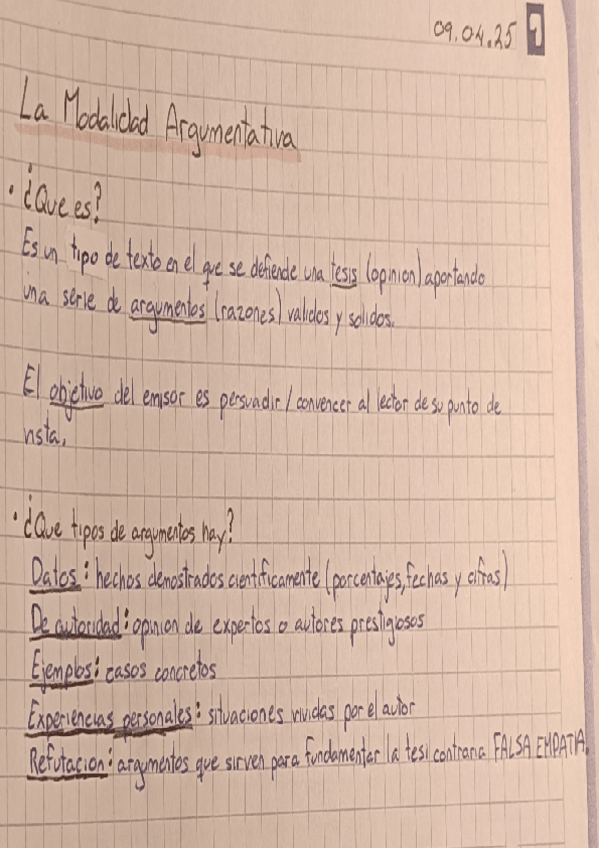 09.04.25 1
La Modalidad Argumentativa
• ¿Que es?
Es un tipo de texto en el que se defiende una tesis (opinion) aportando
una serie de argumentos (razones) validos y solidos.
El objetivo del emisor es persuadir/convencer al lector de su punto de
vista.
• ¿Que tipos de argumentos hay?
Datos: hechos demostrados cientificamente (porcentajes, fechas y cifras)
De autoridad: opinion de expertos o autores prestigiosos
Ejemplos: casos concretos
Experiencias personales: situaciones vividas por el autor
Refutacion: argumentos que sirven para fundamentar la tesi contraria FALSA EMPATIA.